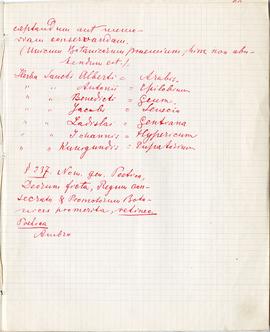 captandum aut memo-
riam conservandam.
(Unicum Botanicorum praemium, hinc non abu-
tendum est.).
Herba Sancti Alberti = Arabis.
" " Antonii = Epilobium
" " Benedicti = Geum.
" " Jacobi = Senecio
" " Ladislai = Gentiana
" " Johannis = Hypericum
" " Kunigundis = Eupatorium
§ 237. Nom. gen. Poetica,
Deorum ficta, Regum con-
secrata & Promotorum Bota-
nices promerita, retineo
Poetica
Ambro